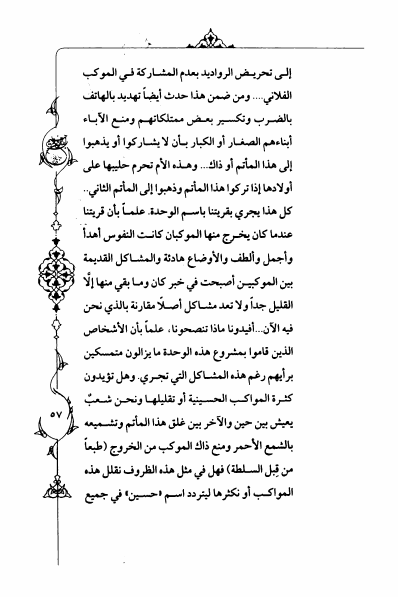 إلى تحريض الرواديد بعدم المشاركة في الموكب
الفلاني.... ومن ضمن هذا حدث أيضاً تهديد بالهاتف
بالضرب وتكسير بعض ممتلكاتهم ومنع الآباء
أبناءهم الصغار أو الكبار بأن لا يشاركوا أو يذهبوا
إلى هذا المأتم أو ذاك... وهذه الأم تحرم حليبها على
أولادها إذا تركوا هذا المأتم وذهبوا إلى المأتم الثاني..
كل هذا يجري بقريتنا باسم الوحدة. علماً بأن قريتنا
عندما كان يخرج منها الموكبان كانت النفوس أهدأ
وأجمل وألطف والأوضاع هادئة والمشاكل القديمة
بين الموكبين أصبحت في خبر كان وما بقي منها إلَّا
القليل جداً ولا تعد مشاكل أصلًا مقارنة بالذي نحن
فيه الآن...أفيدونا ماذا تنصحونا، علماً بأن الأشخاص
الذين قاموا بمشروع هذه الوحدة ما يزالون متمسكين
برأيهم رغم هذه المشاكل التي تجري. وهل تؤيدون
كثرة المواكب الحسينية أو تقليلها ونحن شعبٌ
يعيش بين حين والآخر بين غلق هذا المأتم وتشميعه
بالشمع الأحمر ومنع ذاك الموكب من الخروج (طبعاً
من قِبل السلطة) فهل في مثل هذه الظروف نقلل هذه
المواكب أو نكثرها ليتردد اسم «حسين» في جميع
٥٧